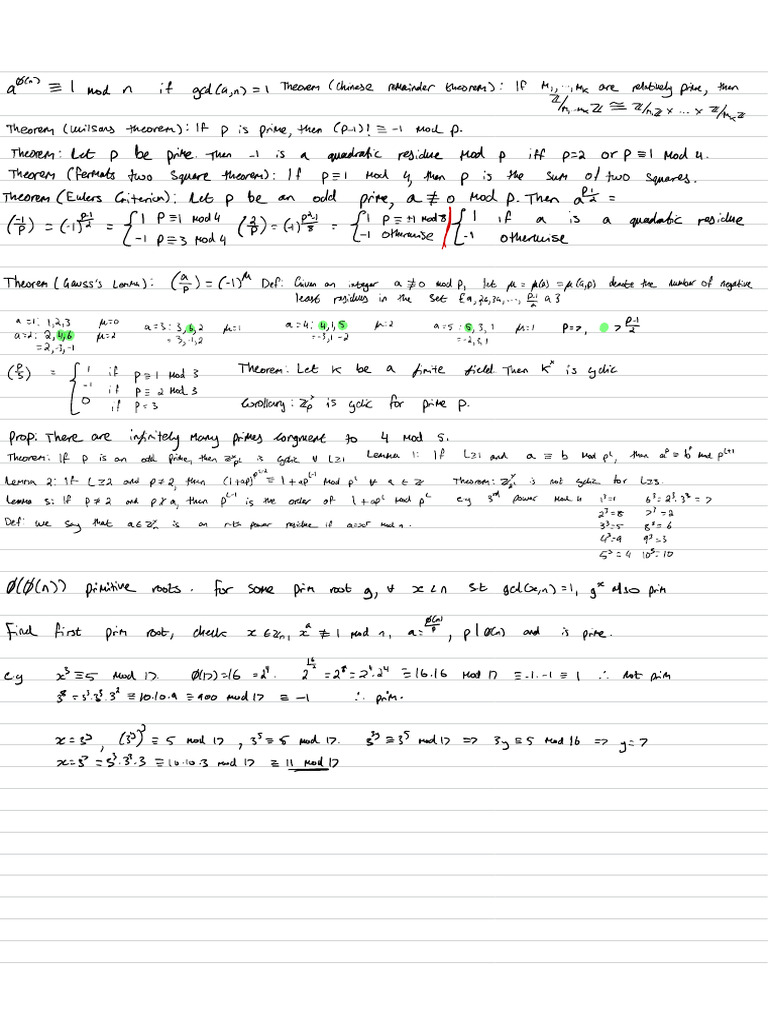 a^ø(n) ≡ 1 mod n if gcd(a,n) = 1 Theorem (Chinese remainder theorem): If M₁,...,Mₖ are relatively prime, then
Z/m₁...mₖZ ≅ Z/m₁Z × ... × Z/mₖZ
Theorem (Wilsons theorem): If p is prime, then (p-1)! ≡ -1 mod p.
Theorem: Let p be prime. Then -1 is a quadratic residue mod p iff p=2 or p≡1 mod 4.
Theorem (fermats two square theorem): If p≡1 mod 4, then p is the sum of two squares.
Theorem (Eulers Criterion): Let p be an odd prime, a ≢ 0 mod p. Then a^(p-1)/2 =
(-1/p) = (-1)^(p-1)/2 = { 1 p≡1 mod 4 (2/p) = (-1)^(p²-1)/8 = { 1 p≡±1 mod 8 { 1 if a is a quadratic residue
-1 p≡3 mod 4 -1 otherwise -1 otherwise
Theorem (Gauss's Lemma): (a/p) = (-1)^μ Def: Given an integer a≢0 mod p, let μ = μ(a) = μ(a,p) denote the number of negative
least residues in the set {a, 2a, 3a, ..., p-1/2 a}
a=1: 1,2,3 μ=0 a=3: 3,6,2 μ=1 a=4: 4,1,5 μ=2 a=5: 5,3,1 μ=1 p=7, > p-1/2
a=2: 2,4,6 μ=2 = 3,-1,2 = -3,1,-2 = -2,3,1
= 2,-3,-1
(p/3) = { 1 if p≡1 mod 3 Theorem: Let K be a finite field. Then K^x is cyclic
-1 if p≡2 mod 3
0 if p=3 Corollary: Zₚ^x is cyclic for prime p.
Prop: There are infinitely many primes congruent to 4 mod 5.
Theorem: If p is an odd prime, then Z^x_p^L is cyclic ∀ L≥1 Lemma 1: If L≥1 and a ≡ b mod p^L, then a^p ≡ b^p mod p^L+1
Lemma 2: If L≥2 and p≠2, then (1+ap)^p^L-2 ≡ 1+ap^L-1 mod p^L ∀ a∈Z Theorem: Z^x_2^L is not cyclic for L≥3.
Lemma 3: If p≠2 and p∤a, then p^L-1 is the order of 1+ap mod p^L e.g 3rd power mod 11 1³=1 6³=2³.3³=7
2³=8 7³=2
Def: We say that a∈Zₙ^x is an r-th power residue if a≡x^r mod n. 3³=5 8³=6
4³=9 9³=3
5³=4 10³=10
ø(ø(n)) primitive roots. for some prim root g, ∀ x<n st gcd(x,n)=1, g^x also prim
Find first prim root, check x∈Zₙ, x^a ≢ 1 mod n, a = ø(n)/p, p|ø(n) and is prime.
e.g x³≡5 mod 17. ø(17)=16=2⁴. 2^16/2 = 2⁸ = 2⁴.2⁴ ≡ 16.16 mod 17 ≡ -1.-1 ≡ 1 ∴ not prim
3⁸=3³.3³.3² ≡ 10.10.9 ≡ 900 mod 17 ≡ -1 ∴ prim.
x=3^y, (3^y)³ ≡ 5 mod 17, 3⁵≡5 mod 17. 3^3y ≡ 3⁵ mod 17 => 3y≡5 mod 16 => y=7
x=3⁷=3³.3³.3 ≡ 10.10.3 mod 17 ≡ 11 mod 17